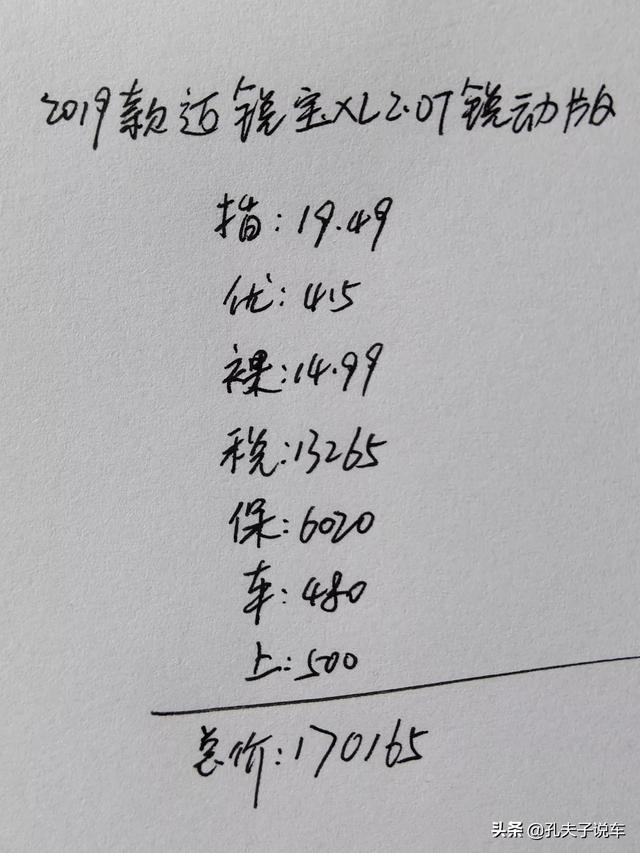 2019款迈锐宝XL2.0T锐动版
指:19.49
优:4.5
裸:14.99
税:13265
保:6020
车:480
上:500
总价:170165
头条 @孔夫子说车